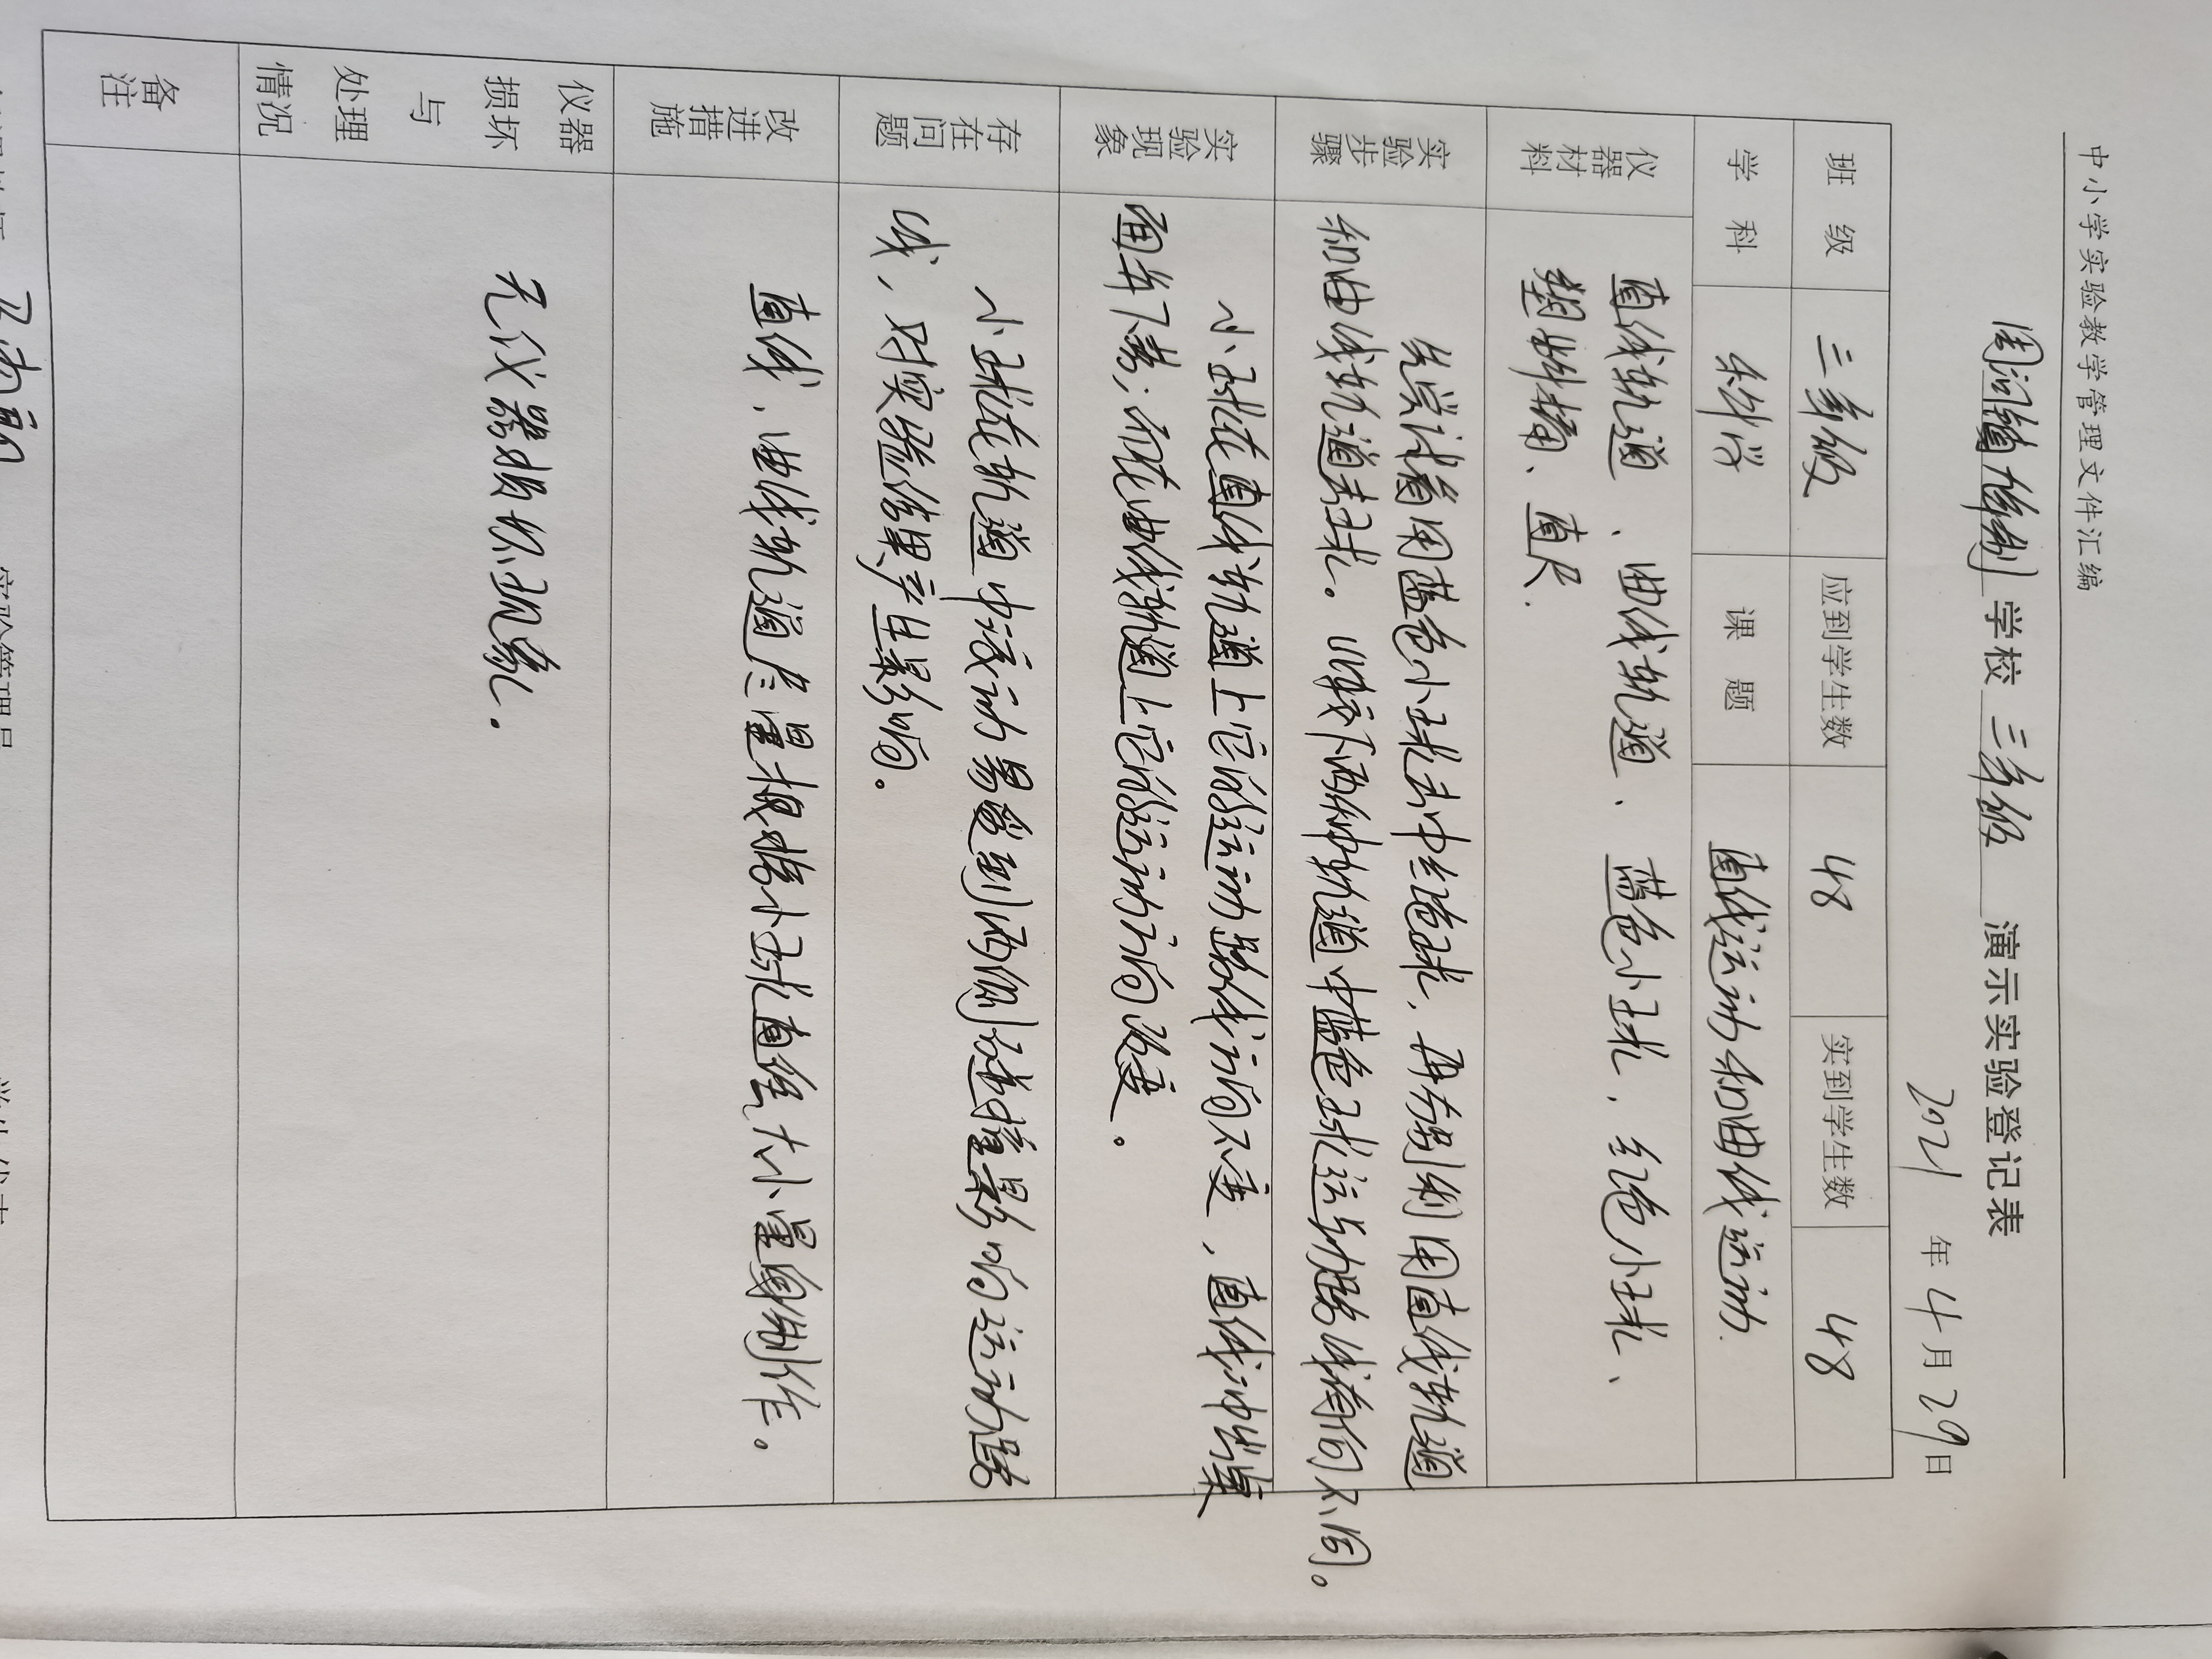 中小学实验教学管理文件汇编
学校 三年级 演示实验登记表
2021 年 4 月 29 日
班 级 三年级 应到学生数 48 实到学生数 48
学 科 科学 课 题 直线运动和曲线运动.
仪器材料
直线轨道、曲线轨道、蓝色小球、红色小球、
塑料桶、直尺.
实验步骤
先尝试着用蓝色小球击中红色球，再分别利用直线轨道
和曲线轨道击球。观察下两种轨道中蓝色球运动路线有何不同。
实验现象
小球在直线轨道上它的运动路线方向不变，直线冲出桌
面并下落；而在曲线轨道上它的运动方向改变。
存在问题
小球在轨道中滚动易受到两侧碰撞影响运动路
线，对实验结果产生影响。
改进措施
直线、曲线轨道尽量根据小球直径大小量身制作。
仪器损坏与处理情况
无仪器损坏现象。
备注
实验管理员